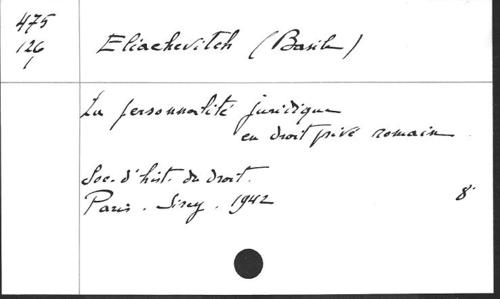 475
126
1
Eliachevitch (Basile)
La personnalité juridique
en droit privé romain
Soc. d'hist. du droit.
Paris. Sirey. 1942 8°